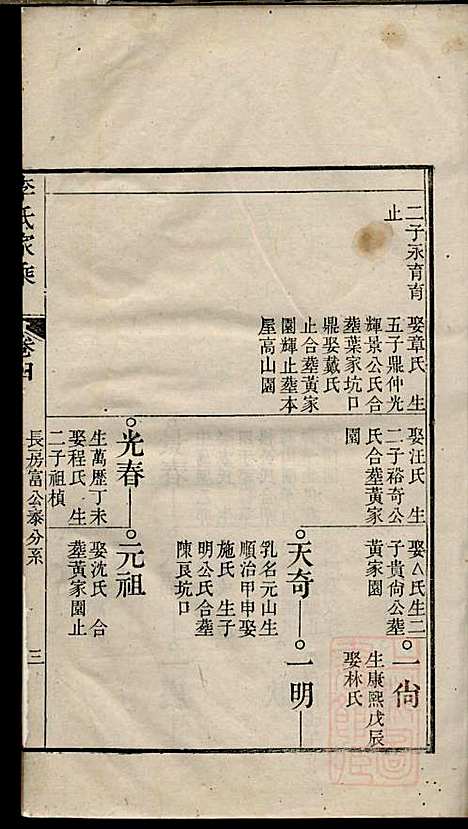 二子永育育
止
娶章氏 生
五子鼎仲光
輝景公氏合
塟葉家坑口
鼎娶戴氏
止合塟黃家
園輝止塟本
屋高山園
娶汪氏 生
二子裕奇公
氏合塟黃家
園
光春
生萬歷丁未
娶程氏 生
二子祖楨
娶∧氏生二
子貴尙公塟
黃家園
天奇
乳名元山生
順治甲申娶
施氏 生子
明公氏合塟
陳良坑口
元祖
娶沈氏 合
塟黃家園止
一尙
生康熙戊辰
娶林氏
一明
李氏家乘
卷四
長房富公泰分系
三